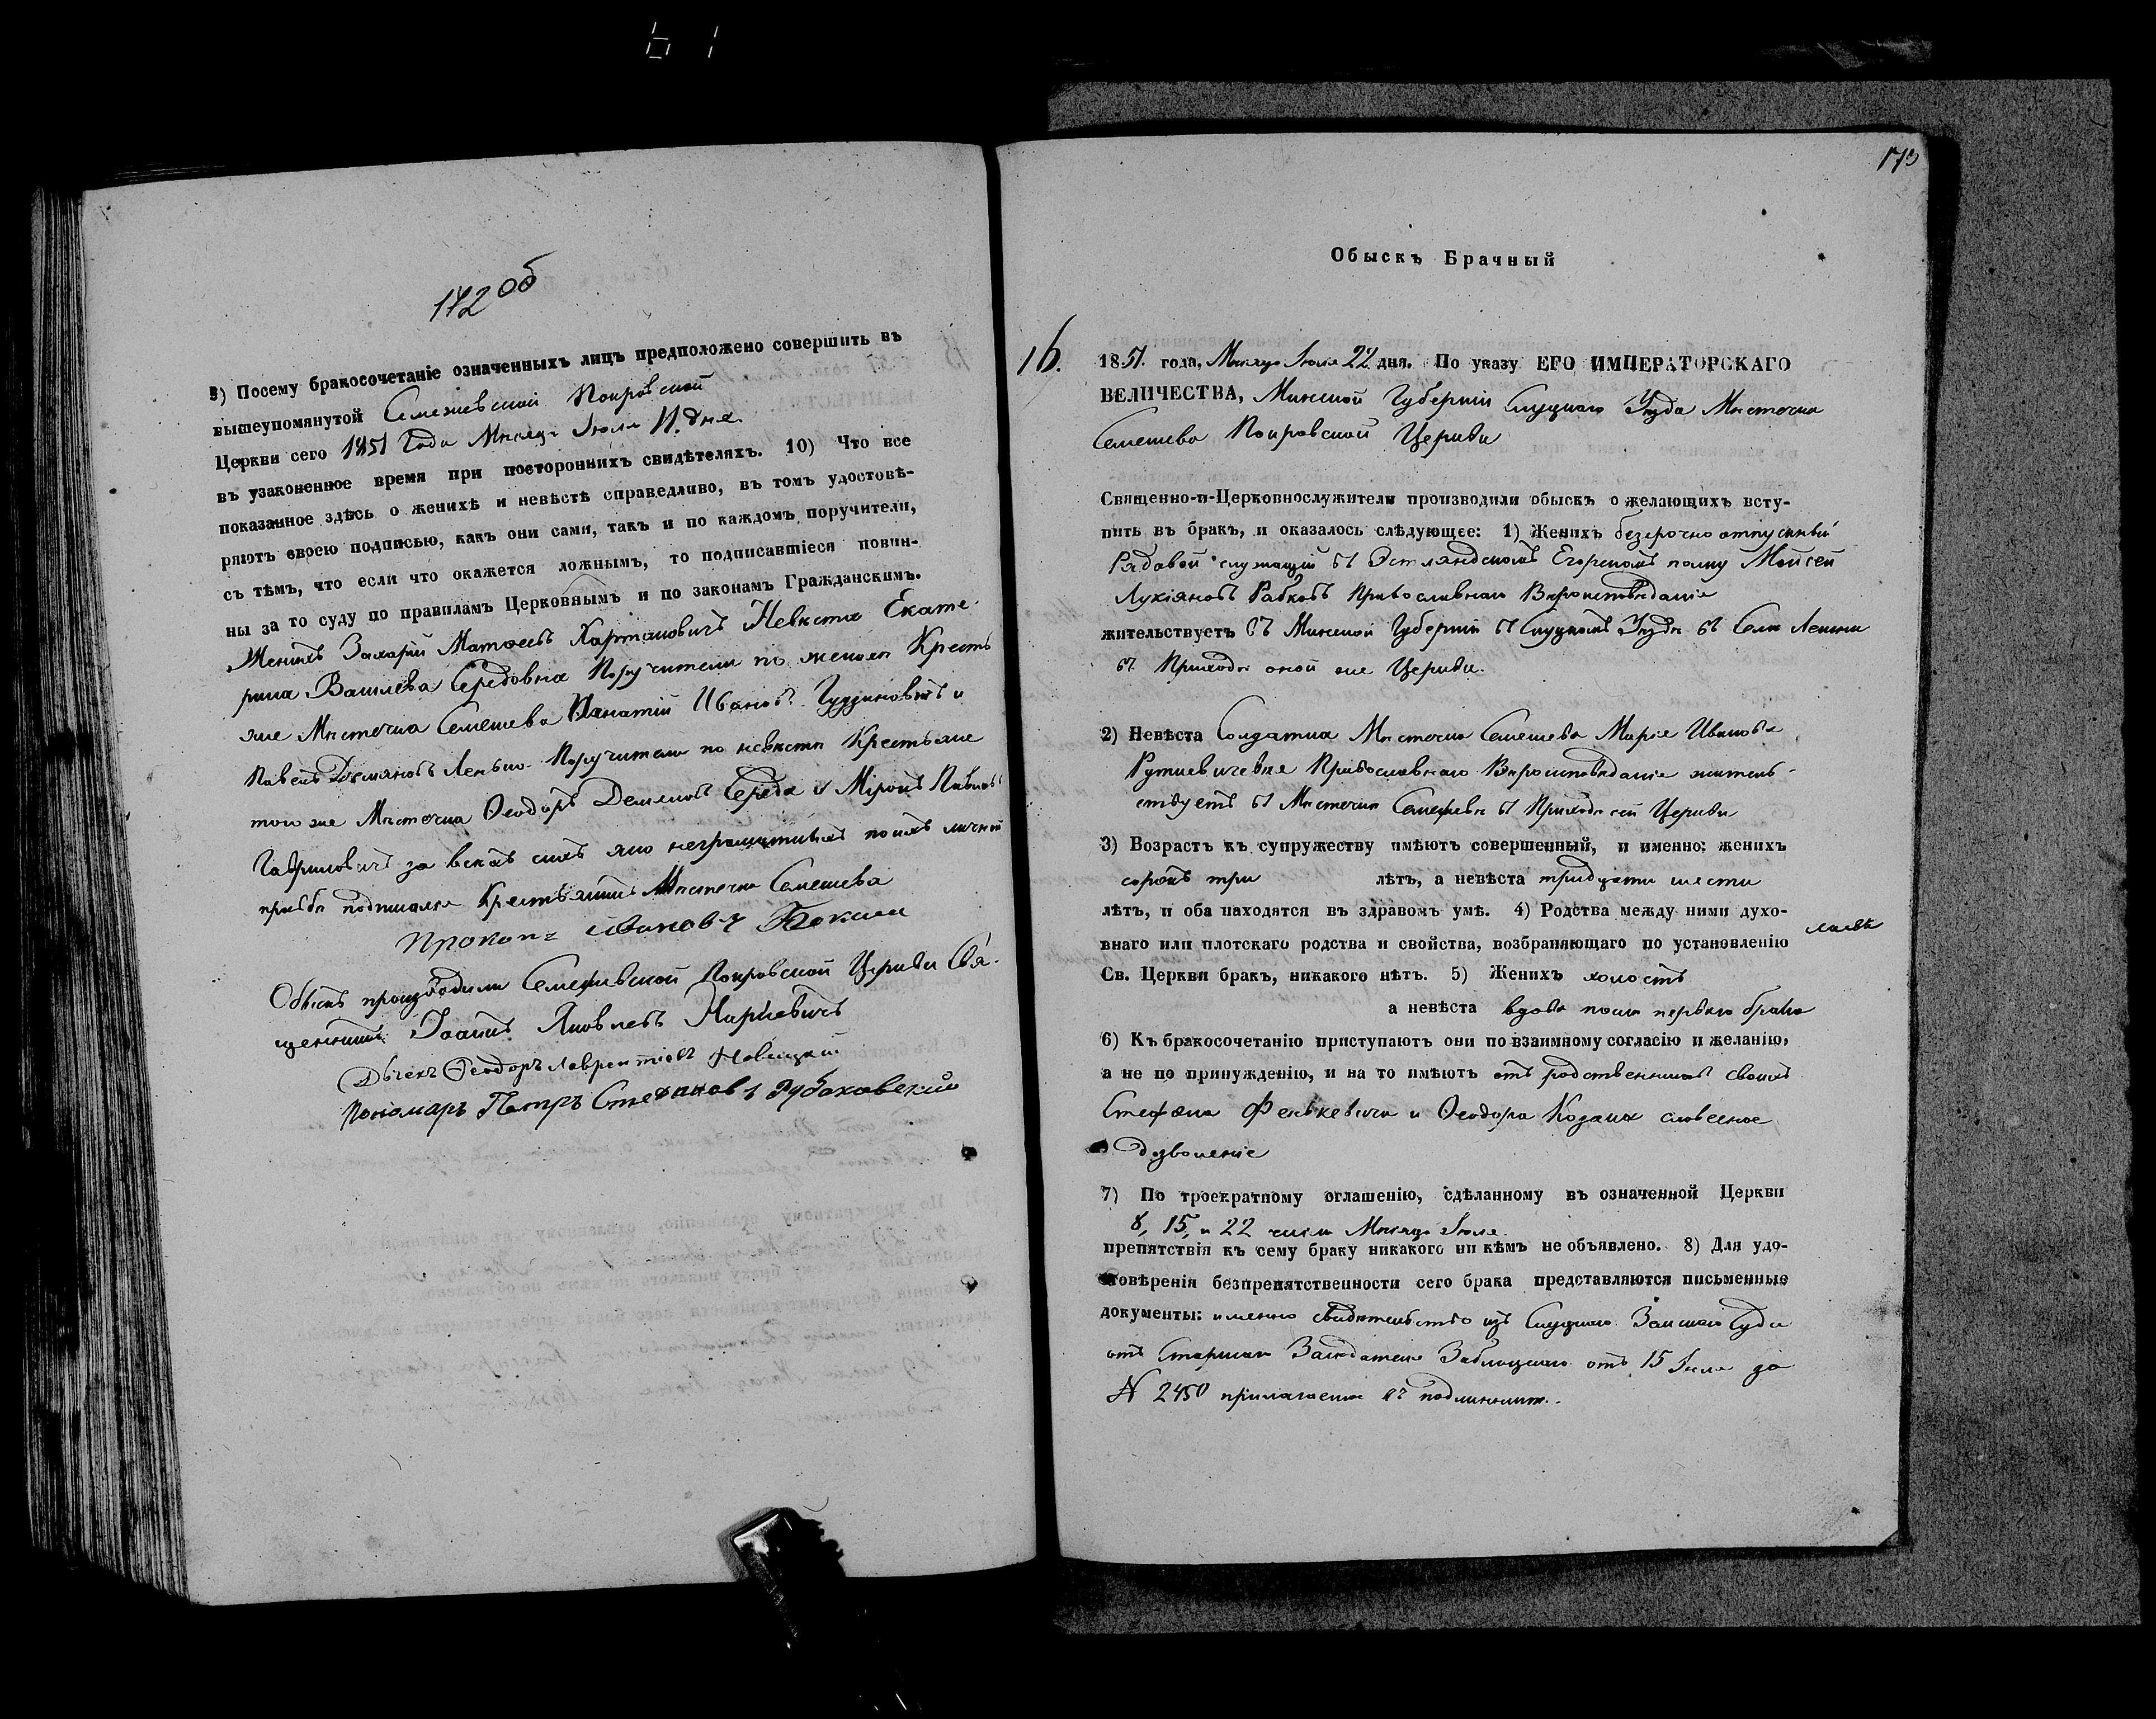 172 об
9) Посему бракосочетаніе означенныхъ лицъ предположено совершить въ
вышеупомянутой Семежевской Покровской
Церкви сего 1851 Года Мѣсяца Іюля дня
въ узаконенное время при постороннихъ свидѣтеляхъ. 10) Что все
показанное здѣсь о женихѣ и невѣстѣ справедливо, въ томъ удостовѣ-
ряютъ своею подписью, какъ они сами, такъ и по каждомъ поручители,
съ тѣмъ, что если что окажется ложнымъ, то подписавшіеся повин-
ны за то суду по правиламъ Церковнымъ и по законамъ Гражданскимъ.
Женихъ Захарій Матѳеевъ Хартановичъ Невѣста Екате-
рина Васильева Середовна Поручители по женихѣ Кресть
яне Мѣстечка Семежева Игнатій Ивановъ и
Павелъ Демяновъ Поручители по невѣстѣ Крестьяне
того же Мѣстечка Ѳеодоръ Демяновъ Середа и Миронъ Павловъ
Гавриловичъ за всѣхъ сихъ яко неграмотныхъ по ихъ личной
прозьбѣ подписался Крестьянинъ Мѣстечка Семежева
Прокопъ Ивановъ
Обыскъ производили Семежевской Покровской Церкви Свя-
щенникъ Іоаннъ Яковлевъ
Дьячекъ Ѳеодоръ Лаврентіевъ Новицкій
Пономарь Петръ Стефановъ Рубановскій
173
Обыскъ Брачный
16.
1851. года, Мѣсяца Іюля 22 дня. По указу ЕГО ИМПЕРАТОРСКАГО
ВЕЛИЧЕСТВА, Минской Губерніи Слуцкаго Уѣзда Мѣстечка
Семежева Покровской Церкви
Священно-и-Церковнослужители производили обыскъ о желающихъ всту-
пить въ бракъ, и оказалось слѣдующее: 1) Женихъ безсрочно отпускный
Рядовой служащій въ Эстляндскомъ Егерскомъ полку Мойсей
Лукіяновъ Рабковъ Православнаго Вѣроисповѣданія
жительствуетъ въ Минской Губерніи въ Слуцкомъ Уѣздѣ въ Селѣ
въ Приходѣ оной же Церкви.
2) Невѣста Солдатка Мѣстечка Семежева Марія Иванова
Руткевичевна Православнаго Вѣроисповѣданія житель-
ствуетъ въ Мѣстечкѣ Семежевѣ въ Приходѣ сей Церкви
3) Возрастъ къ супружеству имѣютъ совершенный, и именно: женихъ
сорокъ три лѣтъ, а невѣста тридцати шести
лѣтъ, и оба находятся въ здравомъ умѣ. 4) Родства между ними духо-
внаго или плотскаго родства и свойства, возбраняющаго по установленію
Св. Церкви бракъ, никакого нѣтъ. 5) Женихъ холостъ
а невѣста вдова послѣ перваго брака
6) Къ бракосочетанію приступаютъ они по взаимному согласію и желанію,
а не по принужденію, и на то имѣютъ отъ родственниковъ своихъ
Стефана Фенькевича и Ѳеодора Козака словесное
дозволеніе
7) По троекратному оглашенію, сдѣланному въ означенной Церкви
8, 15, и 22 числа Мѣсяца Іюля.
препятствія къ сему браку никакого ни кѣмъ не объявлено. 8) Для удо-
стовѣренія безпрепятственности сего брака представляются письменные
документы: именно свидѣтельство изъ Слуцкаго Земскаго Суда
отъ Старшаго Засѣдателя Заблоцкаго отъ 15 Іюля за
N 2450 прилагается въ подлинникѣ.